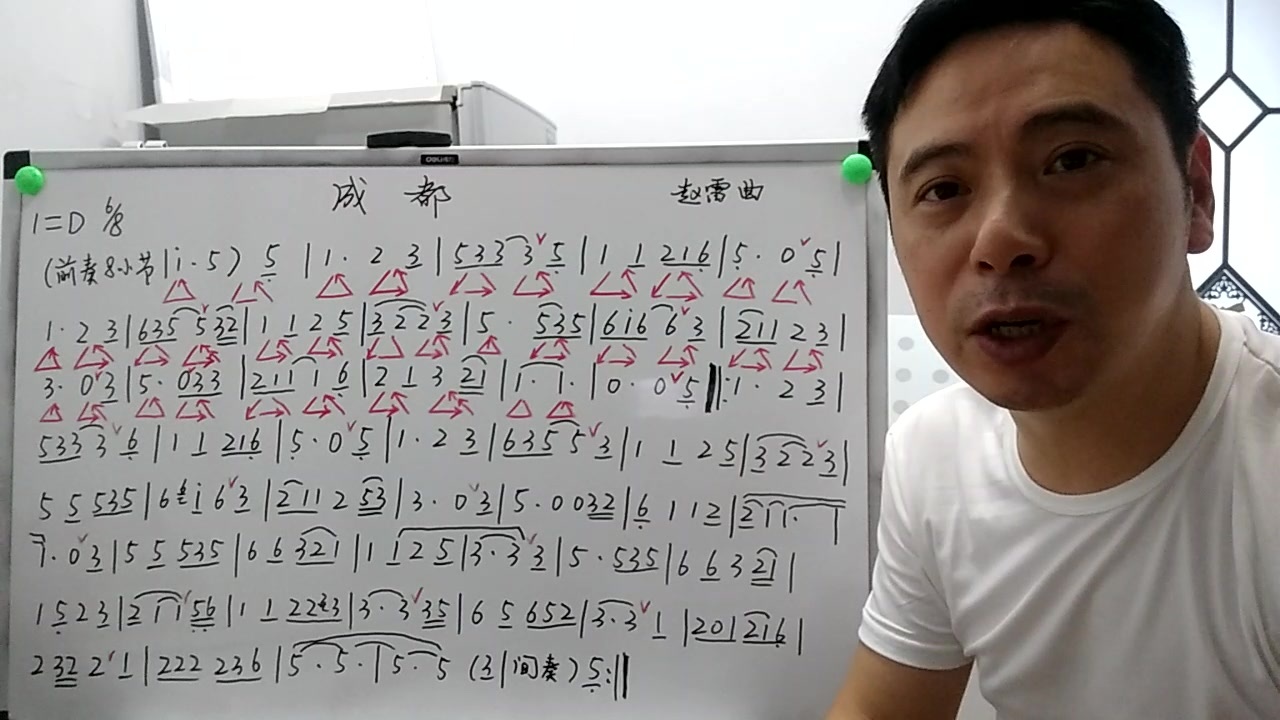 DELI
成 都
赵雷曲
1=D 6/8
(前奏8小节|i·5) 5 |1· 2 3|533 3 5|1 1 216|5· 0 5|
1·2 3|635 532|1 1 2 5|3 2 2 3|5· 535|6i6 6 3|211 2 3|
3· 0 3|5· 033|211 1 6|2 1 3 21|1· 1·|0· 0 5‖:1· 2 3|
533 3 6|1 1 216|5· 0 5|1· 2 3|635 5 3|1 1 2 5|3 2 2 3|
5 5 535|6 i 6 3|211 2 53|3· 0 3|5· 0 032|6 1 1 2|2 1 1· 7|
7· 0 3|5 5 535|6 6 321|1 1 2 5|3· 3 3|5· 535|6 6 3 21|
1 5 2 3|2 1 1 56|1 1 22 3|3· 3 35|6 5 652|3· 3 1|201 216|
2 32 2 1|222 236|5· 5·|5· 5 (3|间奏) 5:‖